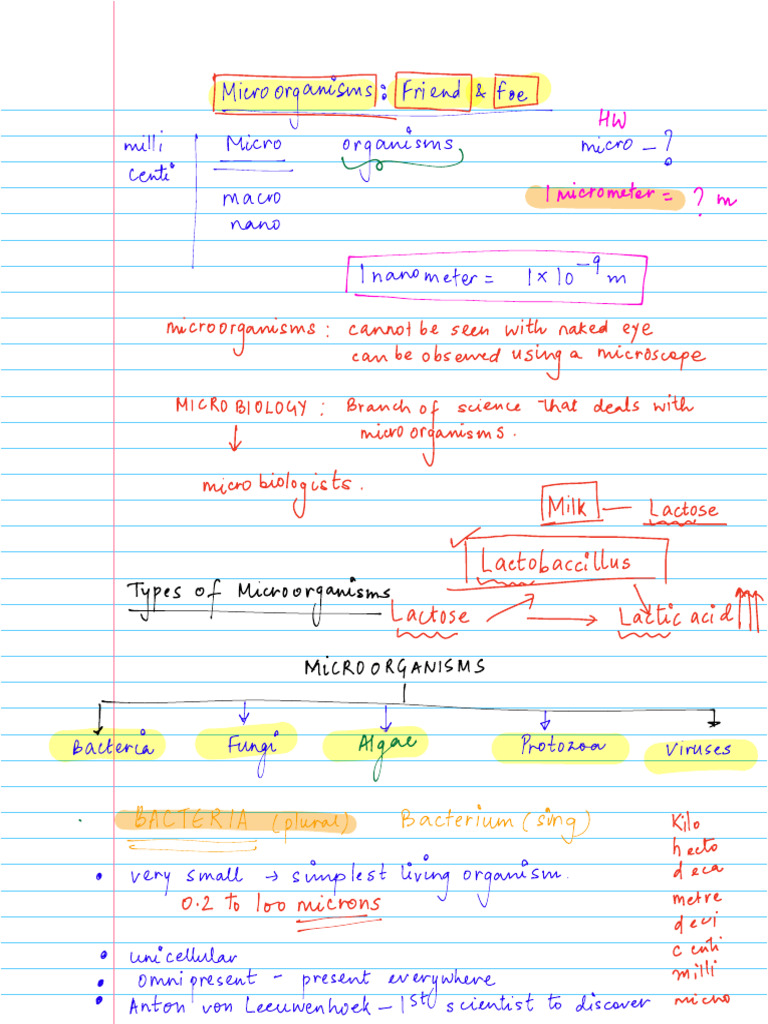 Microorganisms: Friend & foe
HW
milli Micro organisms micro – ?
centi
macro 1 micrometer = ? m
nano
1 nanometer = 1 × 10⁻⁹ m
microorganisms: cannot be seen with naked eye
can be observed using a microscope
MICROBIOLOGY: Branch of science that deals with
microorganisms.
↓
microbiologists.
Milk — Lactose
Lactobaccillus
Types of Microorganisms
Lactose → Lactic acid ↑↑↑
MICROORGANISMS
Bacteria Fungi Algae Protozoa Viruses
BACTERIA (plural) Bacterium (sing)
• very small → simplest living organism.
0.2 to 100 microns
• unicellular
• omnipresent – present everywhere
• Anton von Leeuwenhoek – 1st scientist to discover
Kilo
hecto
deca
metre
deci
centi
milli
micro